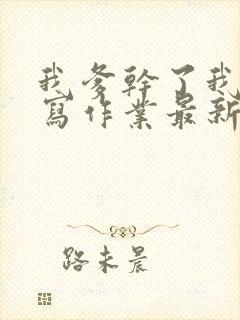 我爹幹了我
寫作業最新
路未晨